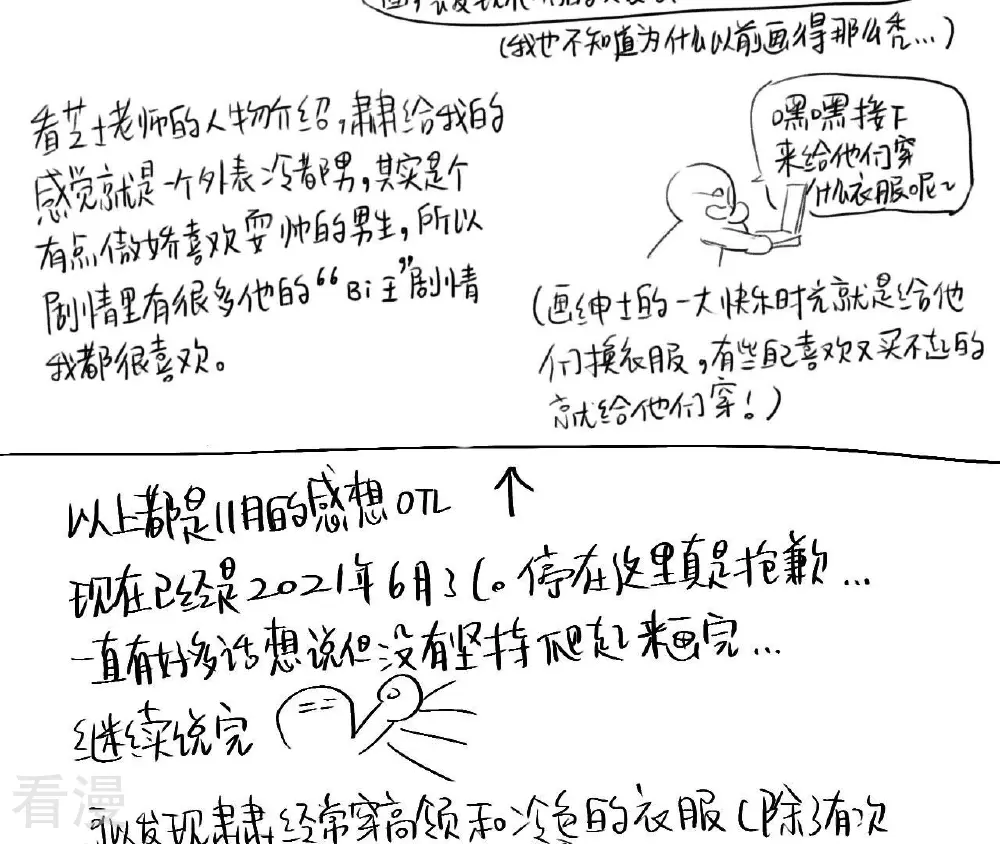 (我也不知道为什么以前画得那么秃...)
看芝士老师的人物介绍,肃给我的
感觉就是一个外表冷都男,其实是个
有点傲娇喜欢耍帅的男生,所以
剧情里有很多他的“Bi王”剧情
我都很喜欢。
嘿嘿接下
来给他们穿
什么衣服呢~
(画绅士的一大快乐时光就是给他
们换衣服,有些自己喜欢又买不起的
就给他们穿!)
以上都是11月的感想OTL ↑
现在已经是2021年6月了(。停在这里真是抱歉...
一直有好多话想说但没有坚持爬起来画完...
继续说完
可以发现肃经常穿高领和冷色的衣服(除了有次
看漫